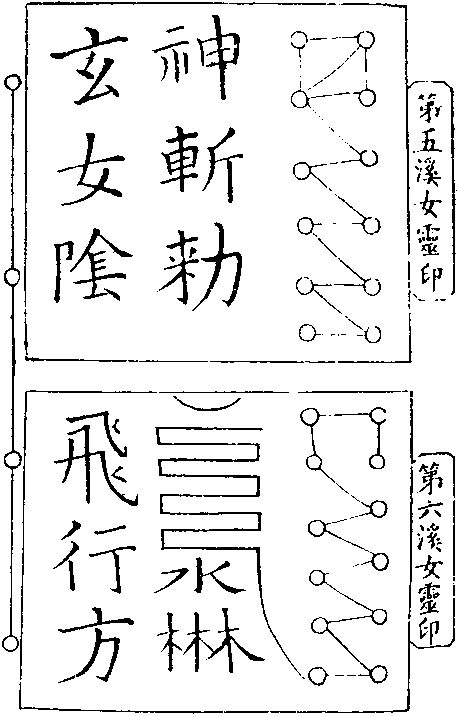 第五溪女靈印
神斬勑
玄女隂
第六溪女靈印
水
飛行方